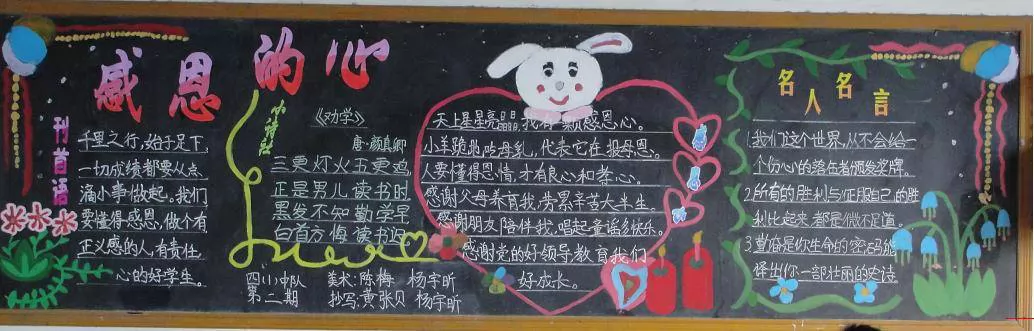 感恩的心
刊首语
千里之行,始于足下,
一切成绩都要从点
滴小事做起。我们
要懂得感恩,做个有
正义感的人,有责任
心的好学生。
小诗社
《劝学》
唐·颜真卿
三更灯火五更鸡,
正是男儿读书时,
黑发不知勤学早
白首方悔读书迟
四(1)中队
第二期
美术:陈梅 杨宇昕
抄写:黄张贝 杨宇昕
天上星星亮晶晶,我有一颗感恩心。
小羊跪脐吃母乳,代表它在报母恩。
人要懂得恩情,才有良心和孝心。
感谢父母养育我,劳累辛苦大半生。
感谢朋友陪伴我,唱起童谣多快乐。
感谢党的好领导教育我们
好成长。
名人名言
1.我们这个世界,从不会给一
个伤心的落伍者颁发奖牌。
2.所有的胜利与征服自己的胜
利比起来,都是微不足道。
3.
你生命的密码能
译出你一部壮丽的史诗